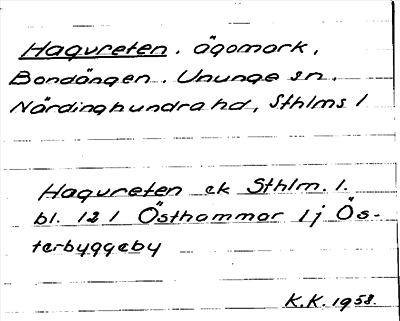 Hagvreten. ägomark,
Bondängen. Ununge sn.
Närdinghundra hd, Sthlms l
Hagvreten ek Sthlm. l.
bl. 121 Östhammar lj Ös-
terbyggeby
K.K. 1958.